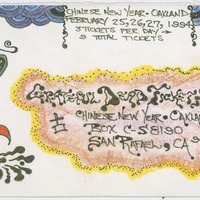 CHINESE NEW YEAR · OAKLAND
FEBRUARY 25, 26, 27, 1994
3 TICKETS PER DAY →
9 TOTAL TICKETS
GRATEFUL DEAD TICKETS
CHINESE NEW YEAR · OAKLA
BOX C-S 8190
SAN RAFAEL, CA 9